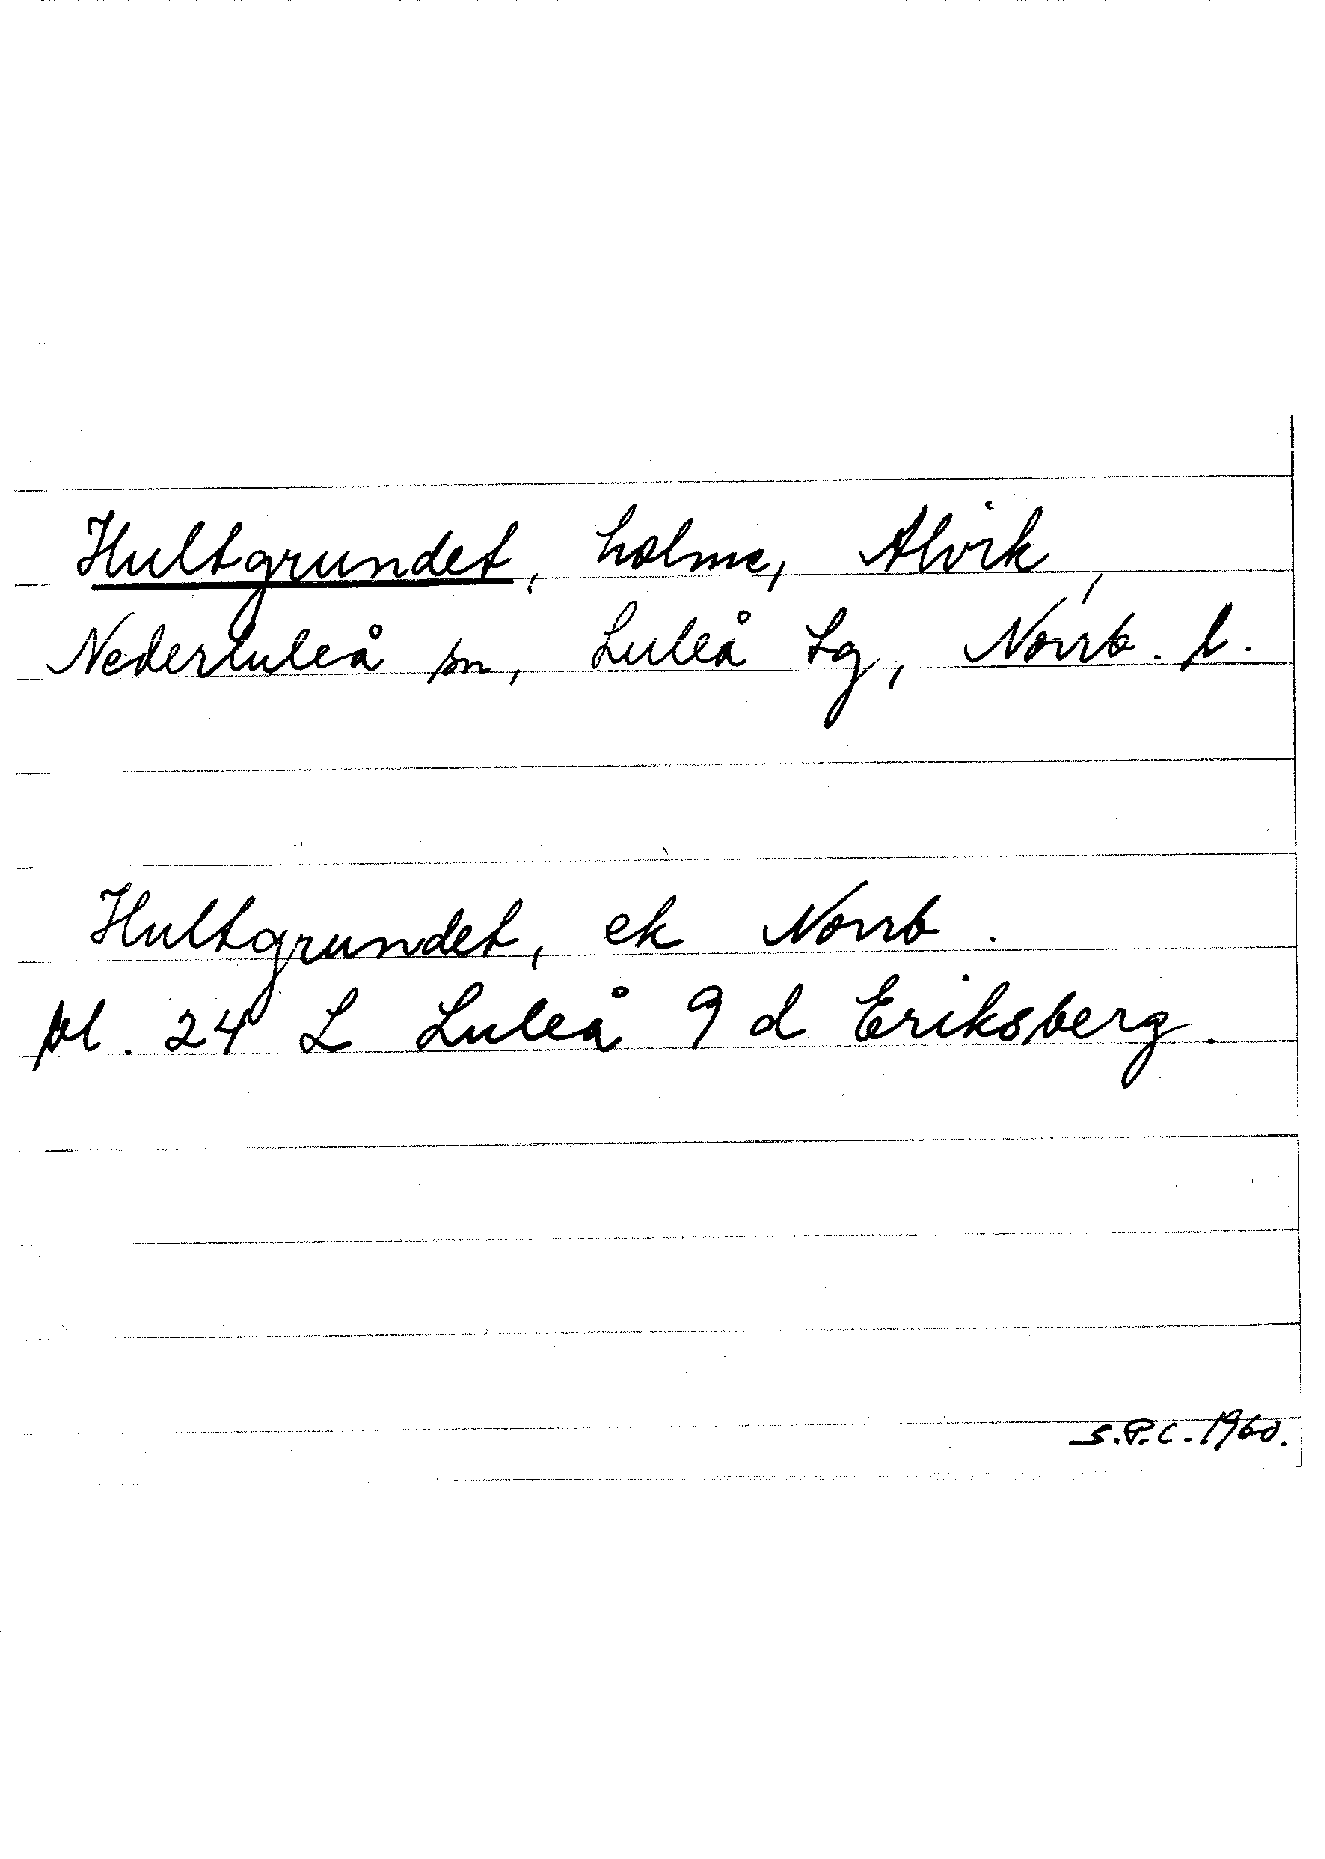 Hultgrundet, holme, Alvik,
Nederluleå sn, Luleå tg, Norrb. l.
Hultgrundet, ek Norrb.
bl. 24 L Luleå 9 d Eriksberg.
S.P.C. 1960.